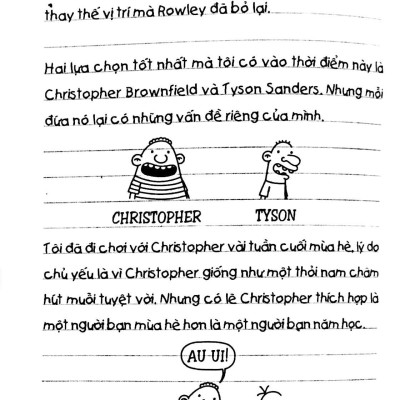 thay thế vị trí mà Rowley đã bỏ lại.
Hai lựa chọn tốt nhất mà tôi có vào thời điểm này là
Christopher Brownfield và Tyson Sanders. Nhưng mỗi
đứa nó lại có những vấn đề riêng của mình.
CHRISTOPHER TYSON
Tôi đã đi chơi với Christopher vài tuần cuối mùa hè, lý do
chủ yếu là vì Christopher giống như một thỏi nam châm
hút muỗi tuyệt vời. Nhưng có lẽ Christopher thích hợp là
một người bạn mùa hè hơn là một người bạn năm học.
AU UI!